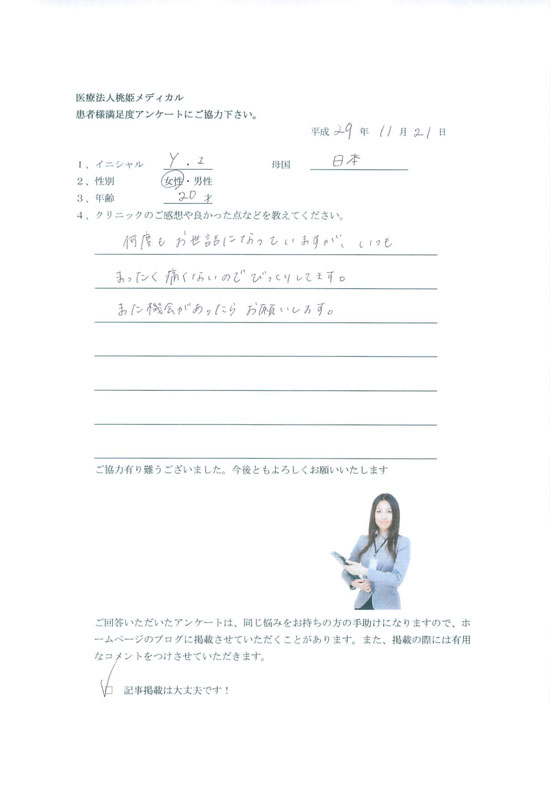 医療法人桃姫メディカル
患者様満足度アンケートにご協力下さい。
平成 29 年 11 月 21 日
1、イニシャル Y . I 母国 日本
2、性別 女性・男性
3、年齢 20 才
4、クリニックのご感想や良かった点などを教えてください。
何度もお世話になっていますが、いつも
まったく痛くないのでびっくりしてます。
また機会があったらお願いします。
ご協力有り難うございました。今後ともよろしくお願いいたします
ご回答いただいたアンケートは、同じ悩みをお持ちの方の手助けになりますので、ホ
ームページのブログに掲載させていただくことがあります。また、掲載の際には有用
なコメントをつけさせていただきます。
□ 記事掲載は大丈夫です！